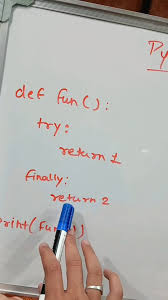 Py
def fun():
try:
return 1
finally:
return 2
print(fun())